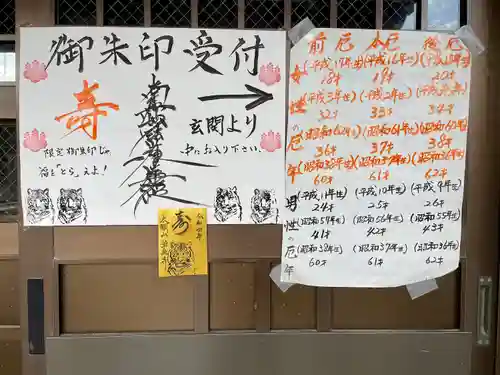 御朱印受付
寿
南無妙法蓮華経
玄関より
中にお入り下さい。
限定御朱印じゃ
福を"とら"えよ!
寿
令和四年
前厄 本厄 後厄
女性の厄年
(平成17年生) (平成16年生) (平成15年生)
18才 19才 20才
(平成3年生) (平成2年生) (平成元年生)
32才 33才 34才
(昭和62年生) (昭和61年生) (昭和60年生)
36才 37才 38才
(昭和38年生) (昭和37年生) (昭和36年生)
60才 61才 62才
男性の厄年
(平成11年生) (平成10年生) (平成9年生)
24才 25才 26才
(昭和57年生) (昭和56年生) (昭和55年生)
41才 42才 43才
(昭和38年生) (昭和37年生) (昭和36年生)
60才 61才 62才